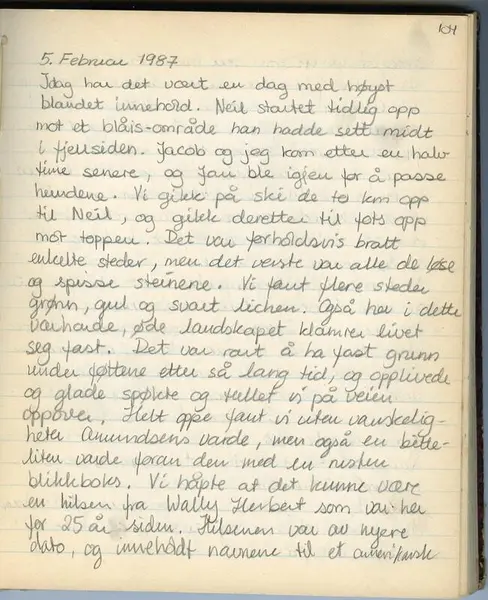 104
5. Februar 1987
Idag har det vært en dag med høyst
blandet innehold. Neil startet tidlig opp
mot et blåis-område han hadde sett midt
i fjellsiden. Jacob og jeg kom etter en halv
time senere, og Jan ble igjen for å passe
hundene. Vi gikk på ski de to km opp
til Neil, og gikk deretter til fots opp
mot toppen. Det var forholdsvis bratt
enkelte steder, men det verste var alle de løse
og spisse steinene. Vi fant flere steder
grønn, gul og svart lichen. Også her i dette
værharde, øde landskapet klamrer livet
seg fast. Det var rart å ha fast grunn
under føttene etter så lang tid, og opplivede
og glade spøkte og tullet vi på veien
oppover. Helt oppe fant vi uten vanskelig-
heter Amundsens varde, men også en bitte-
liten varde foran den med en rusten
blikkboks. Vi håpte at det kunne være
en hilsen fra Wally Herbert som var her
for 25 år siden. Hilsenen var av nyere
dato, og inneholdt navnene til et amerikansk